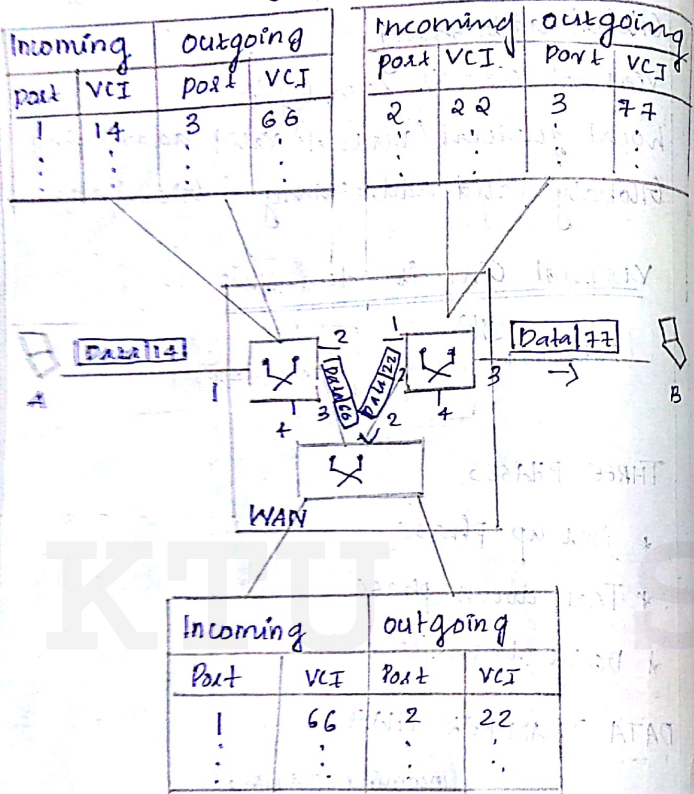 Incoming outgoing
Port VCI Port VCI
1 14 3 66
Incoming outgoing
Port VCI Port VCI
2 22 3 77
A
Data 14
1
2
3
4
Data 66
Data 22
1
2
3
4
2
Data 77
B
WAN
KTU S
THREE PHASES
DATA
Incoming outgoing
Port VCI Port VCI
1 66 2 22